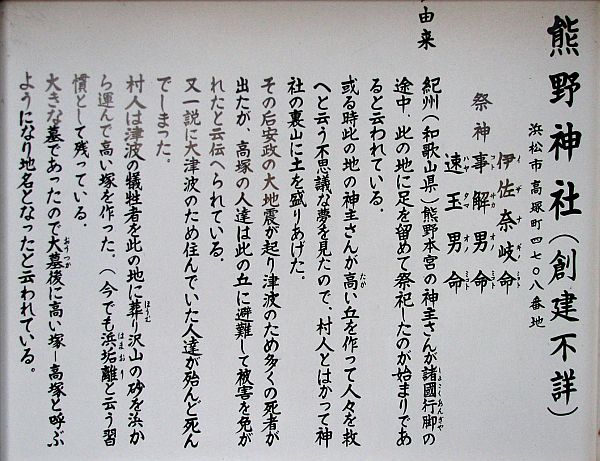 熊野神社（創建不詳）
浜松市高塚町四七〇八番地
伊佐奈岐命
祭神 事解男命
速玉男命
由来
紀州（和歌山県）熊野本宮の神主さんが諸國行脚の
途中、此の地に足を留めて祭祀したのが始まりであ
ると云われている。
或る時此の地の神主さんが高い丘を作って人々を救
へと云う不思議な夢を見たので、村人とはかって神
社の裏山に土を盛りあげた。
その后安政の大地震が起り津波のため多くの死者が
出たが、高塚の人達は此の丘に避難して被害を免が
れたと云伝へられている。
又一説に大津波のため住んでいた人達が殆んど死ん
でしまった。
村人は津波の犠牲者を此の地に葬り沢山の砂を浜か
ら運んで高い塚を作った。（今でも浜垢離と云う習
慣として残っている。
大きな墓であったので大墓後に高い塚－高塚と呼ぶ
ようになり地名となったと云われている。